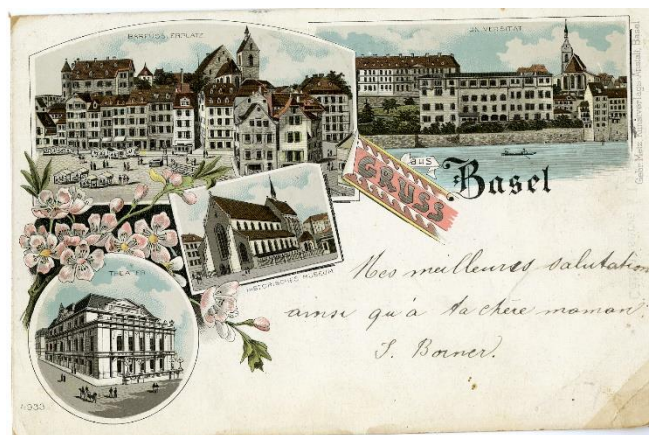 BARFÜSSERPLATZ
UNIVERSITÄT
GRUSS
aus
Basel
HISTORISCHES MUSEUM
THEATER
Mes meilleures salutation
ainsi qu'à ta chère maman.
S. Borner.
4933